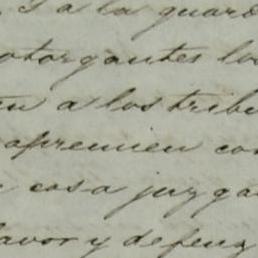 y a la guard
otorgantes los
en a los tribu
apremien co
cosa juzga
favor y defenz